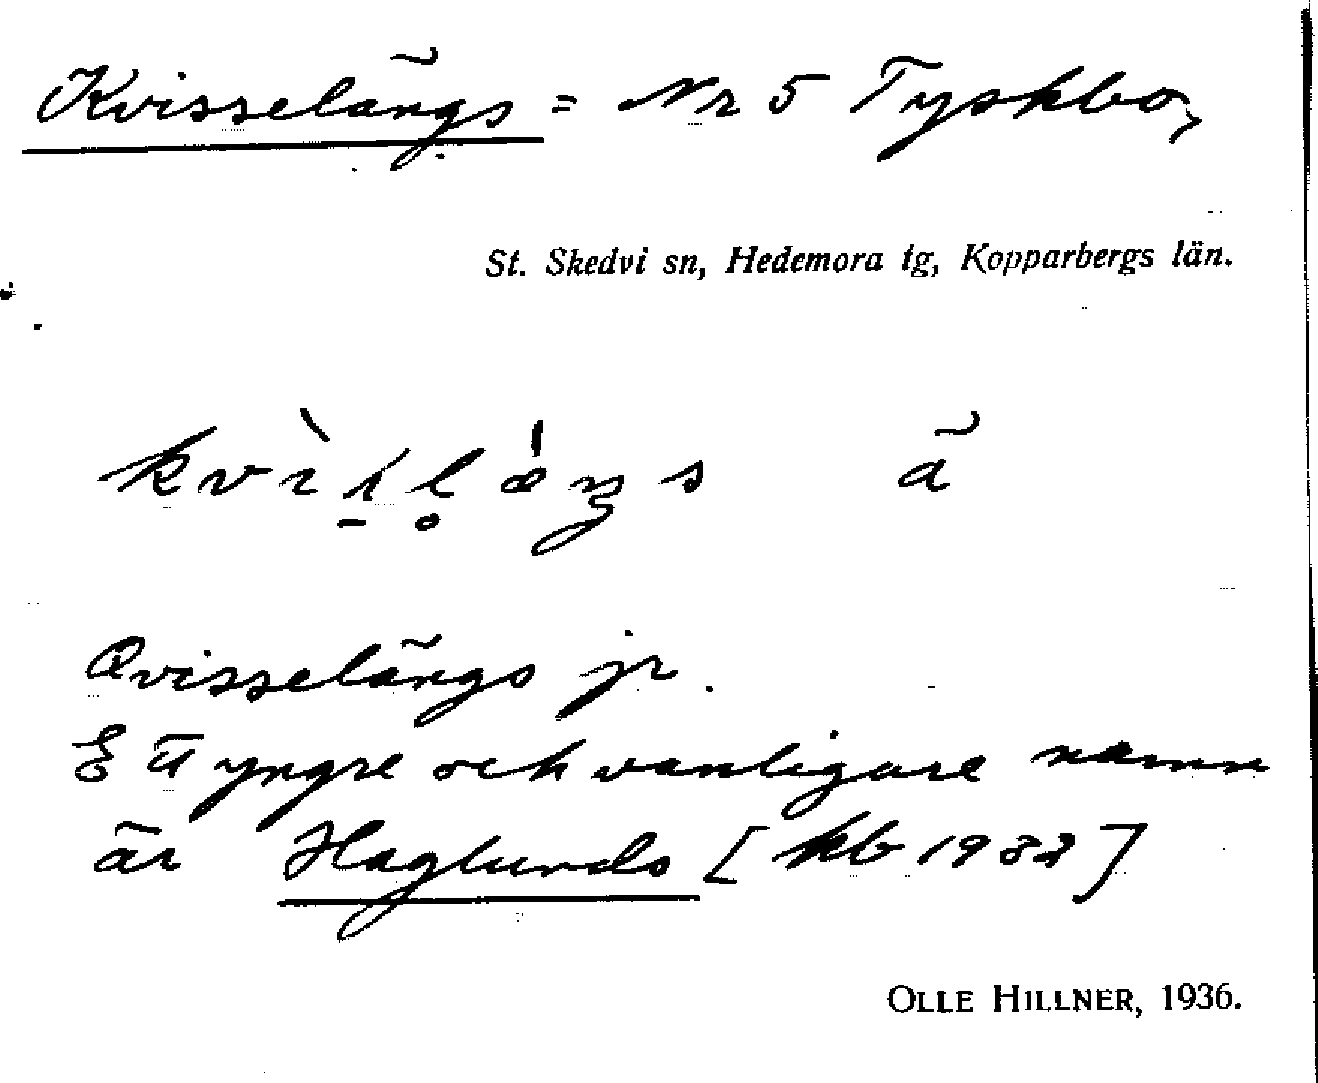 Kvisselängs = Nr 5 Tyskbo,
St. Skedvi sn, Hedemora tg, Kopparbergs län.
ä
Qvisselängs jr.
Ett yngre och vanligare namn
är Haglunds [kb 1938]
OLLE HILLNER, 1936.